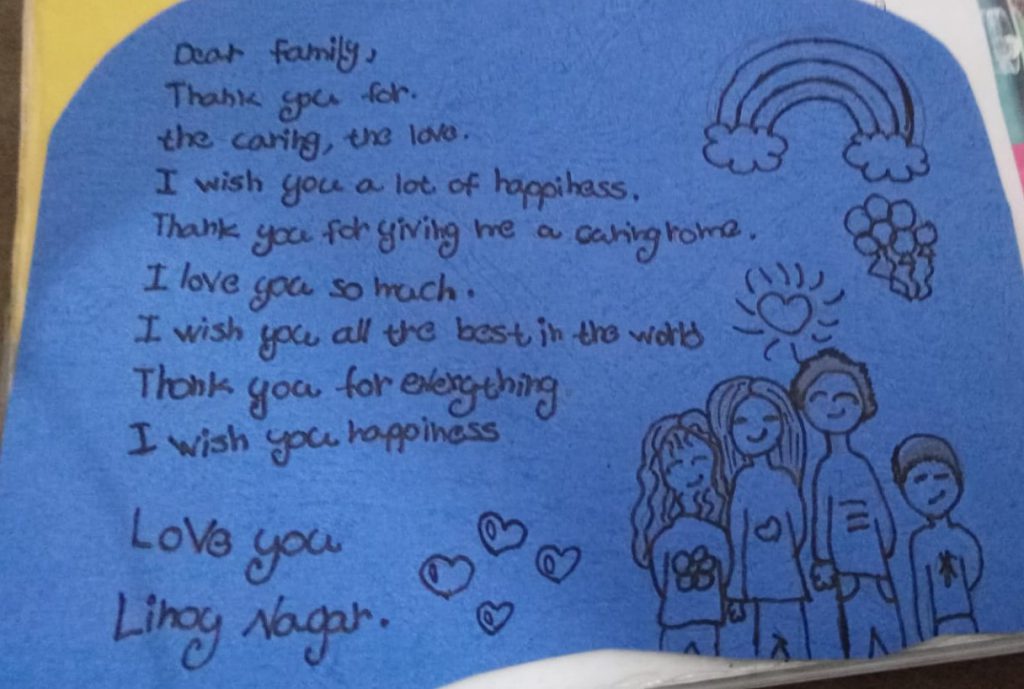 Dear family,
Thank you for.
the caring, the love.
I wish you a lot of happiness.
Thank you for giving me a caring home.
I love you so much.
I wish you all the best in the world
Thank you for everything
I wish you happiness
Love you
Lihoy Nagar.